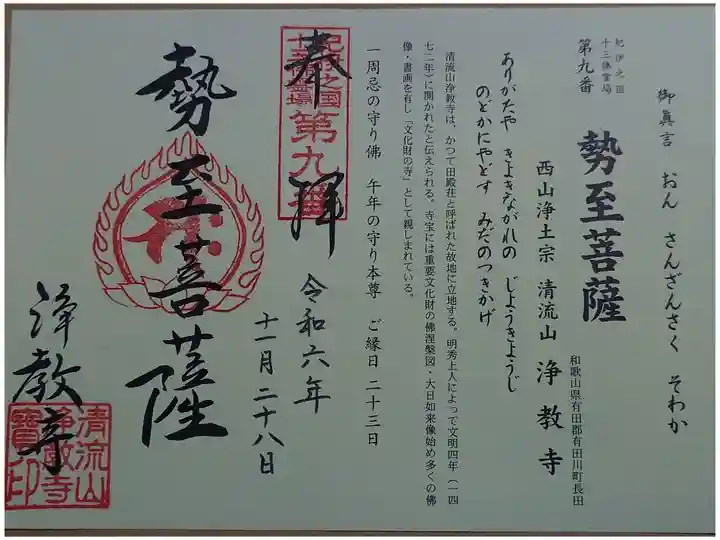 御眞言　おん　さんざんさく　そわか
紀伊之国
十三佛霊場
第九番
勢至菩薩
和歌山県有田郡有田川町長田
西山浄土宗　清流山　浄教寺
ありがたや　きよきながれの　じようきようじ
のどかにやどす　みだのつきかげ
清流山浄教寺は、かつて田殿荘と呼ばれた故地に立地する。明秀上人によって文明四年（一四
七二年）に開かれたと伝えられる。寺宝には重要文化財の佛涅槃図・大日如来像始め多くの佛
像・書画を有し「文化財の寺」として親しまれている。
一周忌の守り佛　午年の守り本尊　ご縁日　二十三日
紀伊之国
十三佛霊場
第九番
奉拝
令和六年
十一月二十八日
勢至菩薩
浄教寺
清流山
浄教寺
寳印